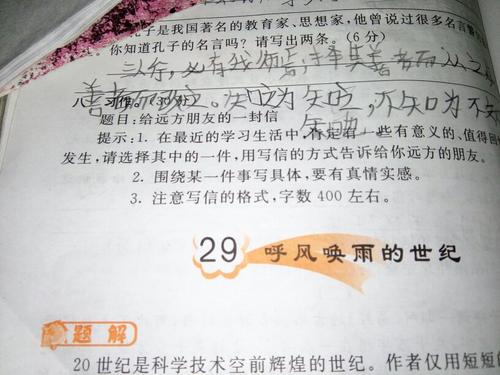 孔子是我国著名的教育家、思想家,他曾说过很多名言
你知道孔子的名言吗?请写出两条。(6 分)
必有我 其善者而从之
善 知之为知之,不知为不知
题目:给远方朋友的一封信
提示:1. 在最近的学习生活中,不定有一些有意义的、值得
发生,请选择其中的一件,用写信的方式告诉给你远方的朋友。
2. 围绕某一件事写具体,要有真情实感。
3. 注意写信的格式,字数 400 左右。
29 呼风唤雨的世纪
题解
20 世纪是科学技术空前辉煌的世纪。作者仅用短短